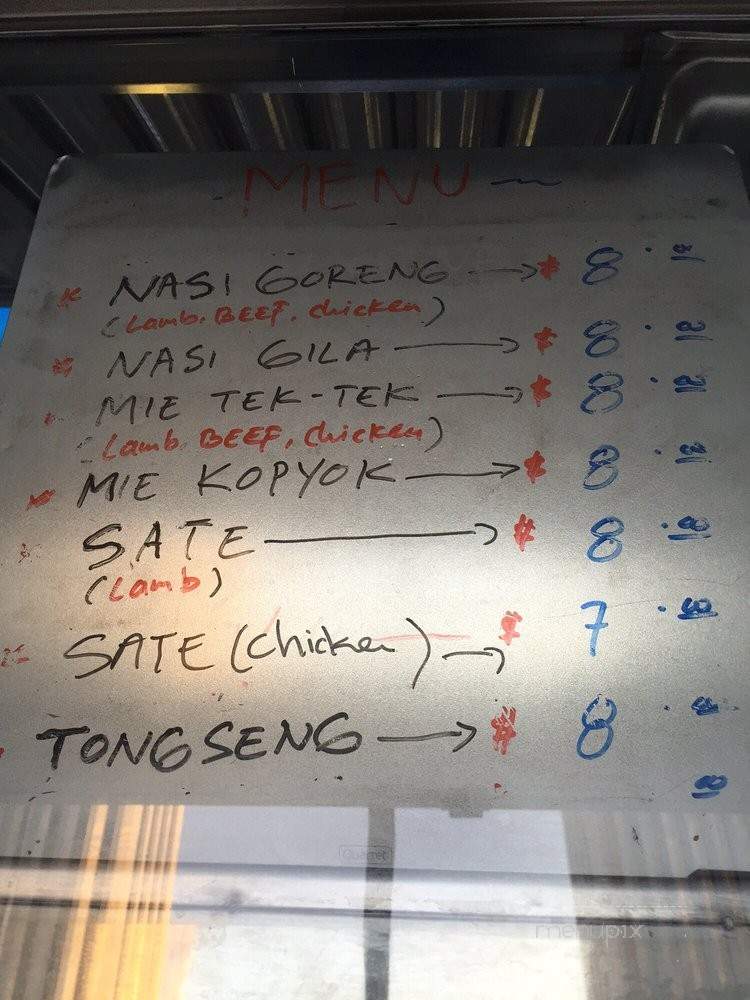 MENU
* NASI GORENG → $ 8.00
(Lamb. BEEF, chicken)
* NASI GILA → $ 8.00
* MIE TEK-TEK → $ 8.00
(Lamb. BEEF, chicken)
* MIE KOPYOK → $ 8.00
* SATE → $ 8.00
(Lamb)
* SATE (chicken) → $ 7.00
TONGSENG → $ 8.00
menupix